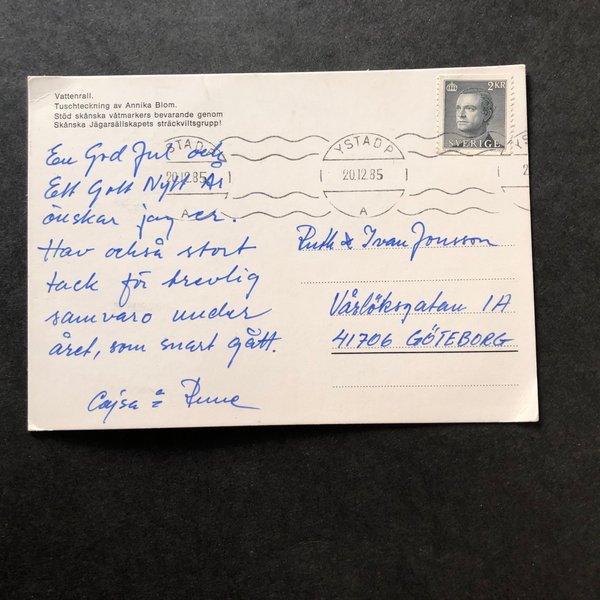 Vattenrall.
Tuschteckning av Annika Blom.
Stöd skånska våtmarkers bevarande genom
Skånska Jägarsällskapets sträckviltsgrupp!
2 KR
SVERIGE
YSTAD P
20.12.85
A
YSTAD P
20.12.85
A
2
En God Jul och
Ett Gott Nytt År
önskar jag er.
Hav också stort
tack för trevlig
samvaro under
året, som snart gått.
Cajsa & Rune
Ruth & Ivan Jonsson
Vårlöksgatan 1A
41706 GÖTEBORG